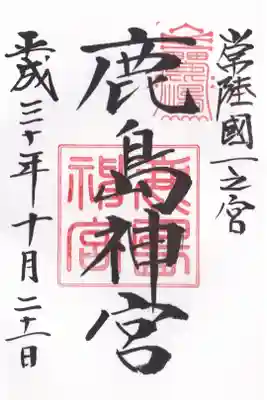 常陸國一之宮
鹿島神宮
鹿島
神宮
平成三十年十月二十一日